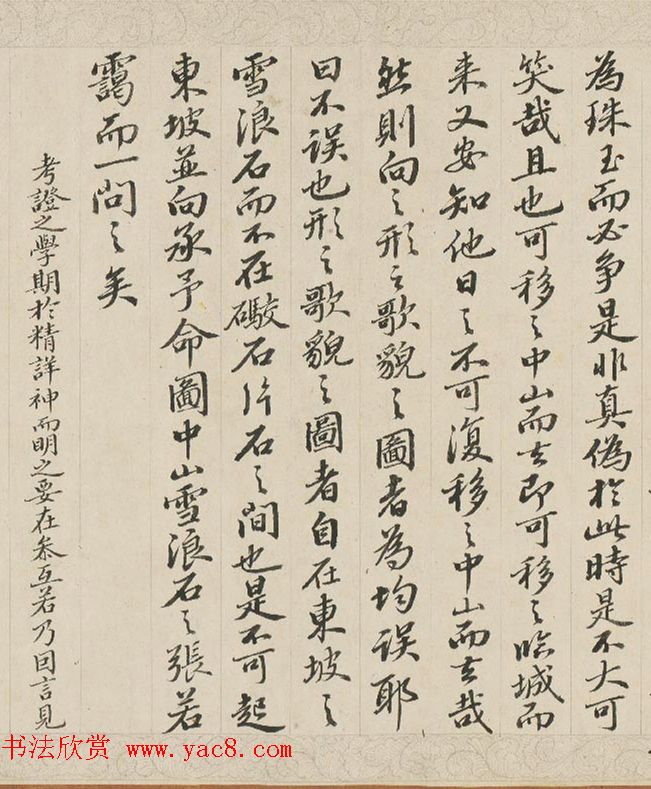 為珠玉而必争是非真偽於此時是不大可
笑哉且也可移之中山而去即可移之臨城而
来又安知他日之不可復移之中山而去哉
然則向之形之歌貌之圖者為均误耶
曰不误也形之歌貌之圖者自在東坡之
雪浪石而不在礮石片石之間也是不可起
東坡並向承予命圖中山雪浪石之張若
靄而一問之矣
考證之學期於精詳神而明之要在叅互若乃因言見
书法欣赏 www.yac8.com